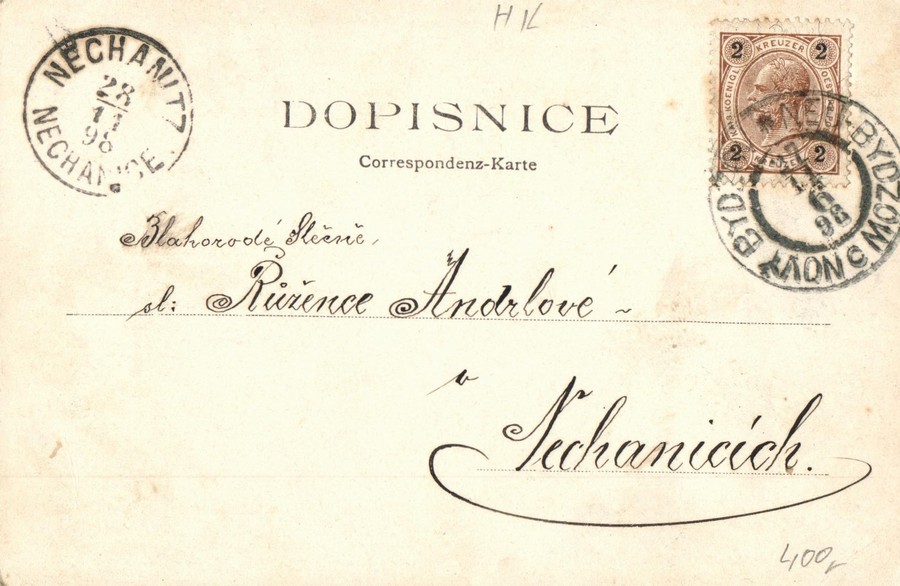 H K
NECHANITZ
28
11
98
NECHANICE
DOPISNICE
Correspondenz-Karte
2 KREUZER 2
2 2
NEU-BYDZOW
98
NOVÝ BYDŽ
Blahorodé Slečně,
sl: Růžence Andrlové ~
v
Nechanicích.
400,